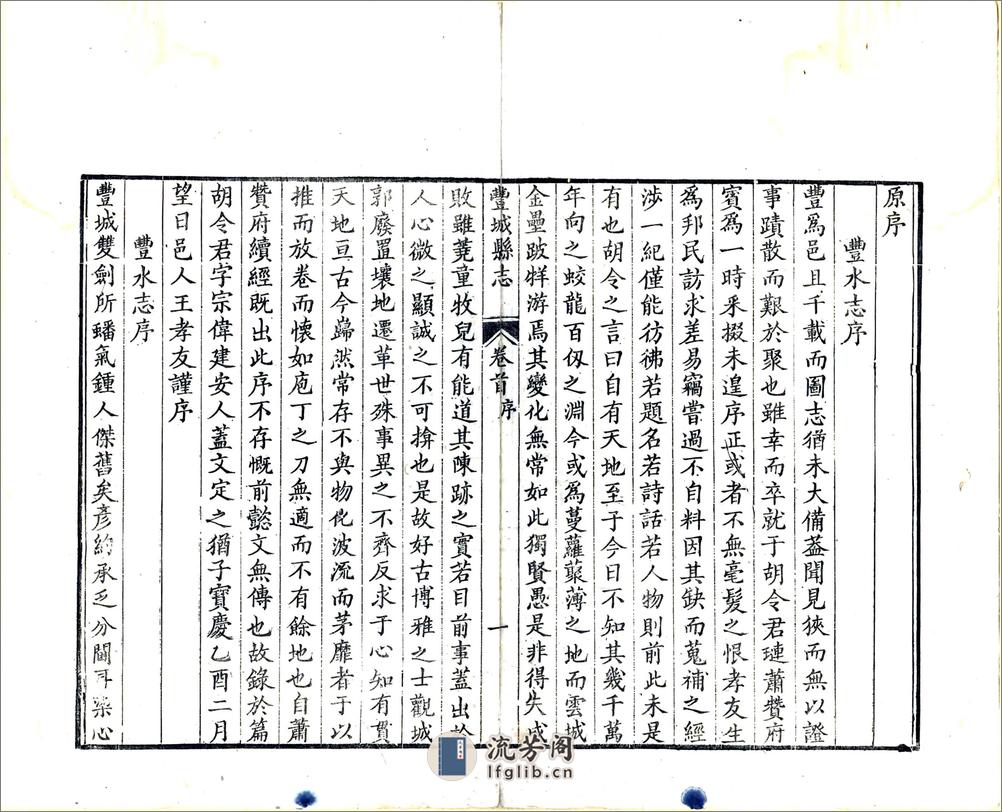 原序
豐水志序
豐爲邑且千載而圖志猶未大備葢聞見狹而無以證
事蹟散而艱於聚也雖幸而卒就于胡令君璉蕭贊府
賓爲一時采掇未遑序正或者不無毫髮之恨孝友生
爲邦民訪求差易竊嘗過不自料因其缺而蒐補之經
涉一紀僅能彷彿若題名若詩話若人物則前此未是
有也胡令之言曰自有天地至于今日不知其幾千萬
年向之蛟龍百仭之淵今或爲蔓蘿藂薄之地而雲城
金壘跛牂游焉其變化無常如此獨賢愚是非得失成
豐城縣志 卷首 序 一
敗雖蕘童牧兒有能道其陳跡之實若目前事蓋出於
人心微之顯誠之不可揜也是故好古博雅之士觀城
郭廢置壤地遷革世殊事異之不齊反求于心知有貫
天地亘古今巋然常存不與物俱波流而茅靡者于以
推而放卷而懷如庖丁之刀無適而不有餘地也自蕭
贊府續經旣出此序不存慨前懿文無傳也故錄於篇
胡令君字宗偉建安人蓋文定之猶子寶慶乙酉二月
望日邑人王孝友謹序
豐水志序
豐城雙劍所蟠氣鍾人傑舊矣彥約承乏分閫耳染心
流芳阁
lfglib.cn